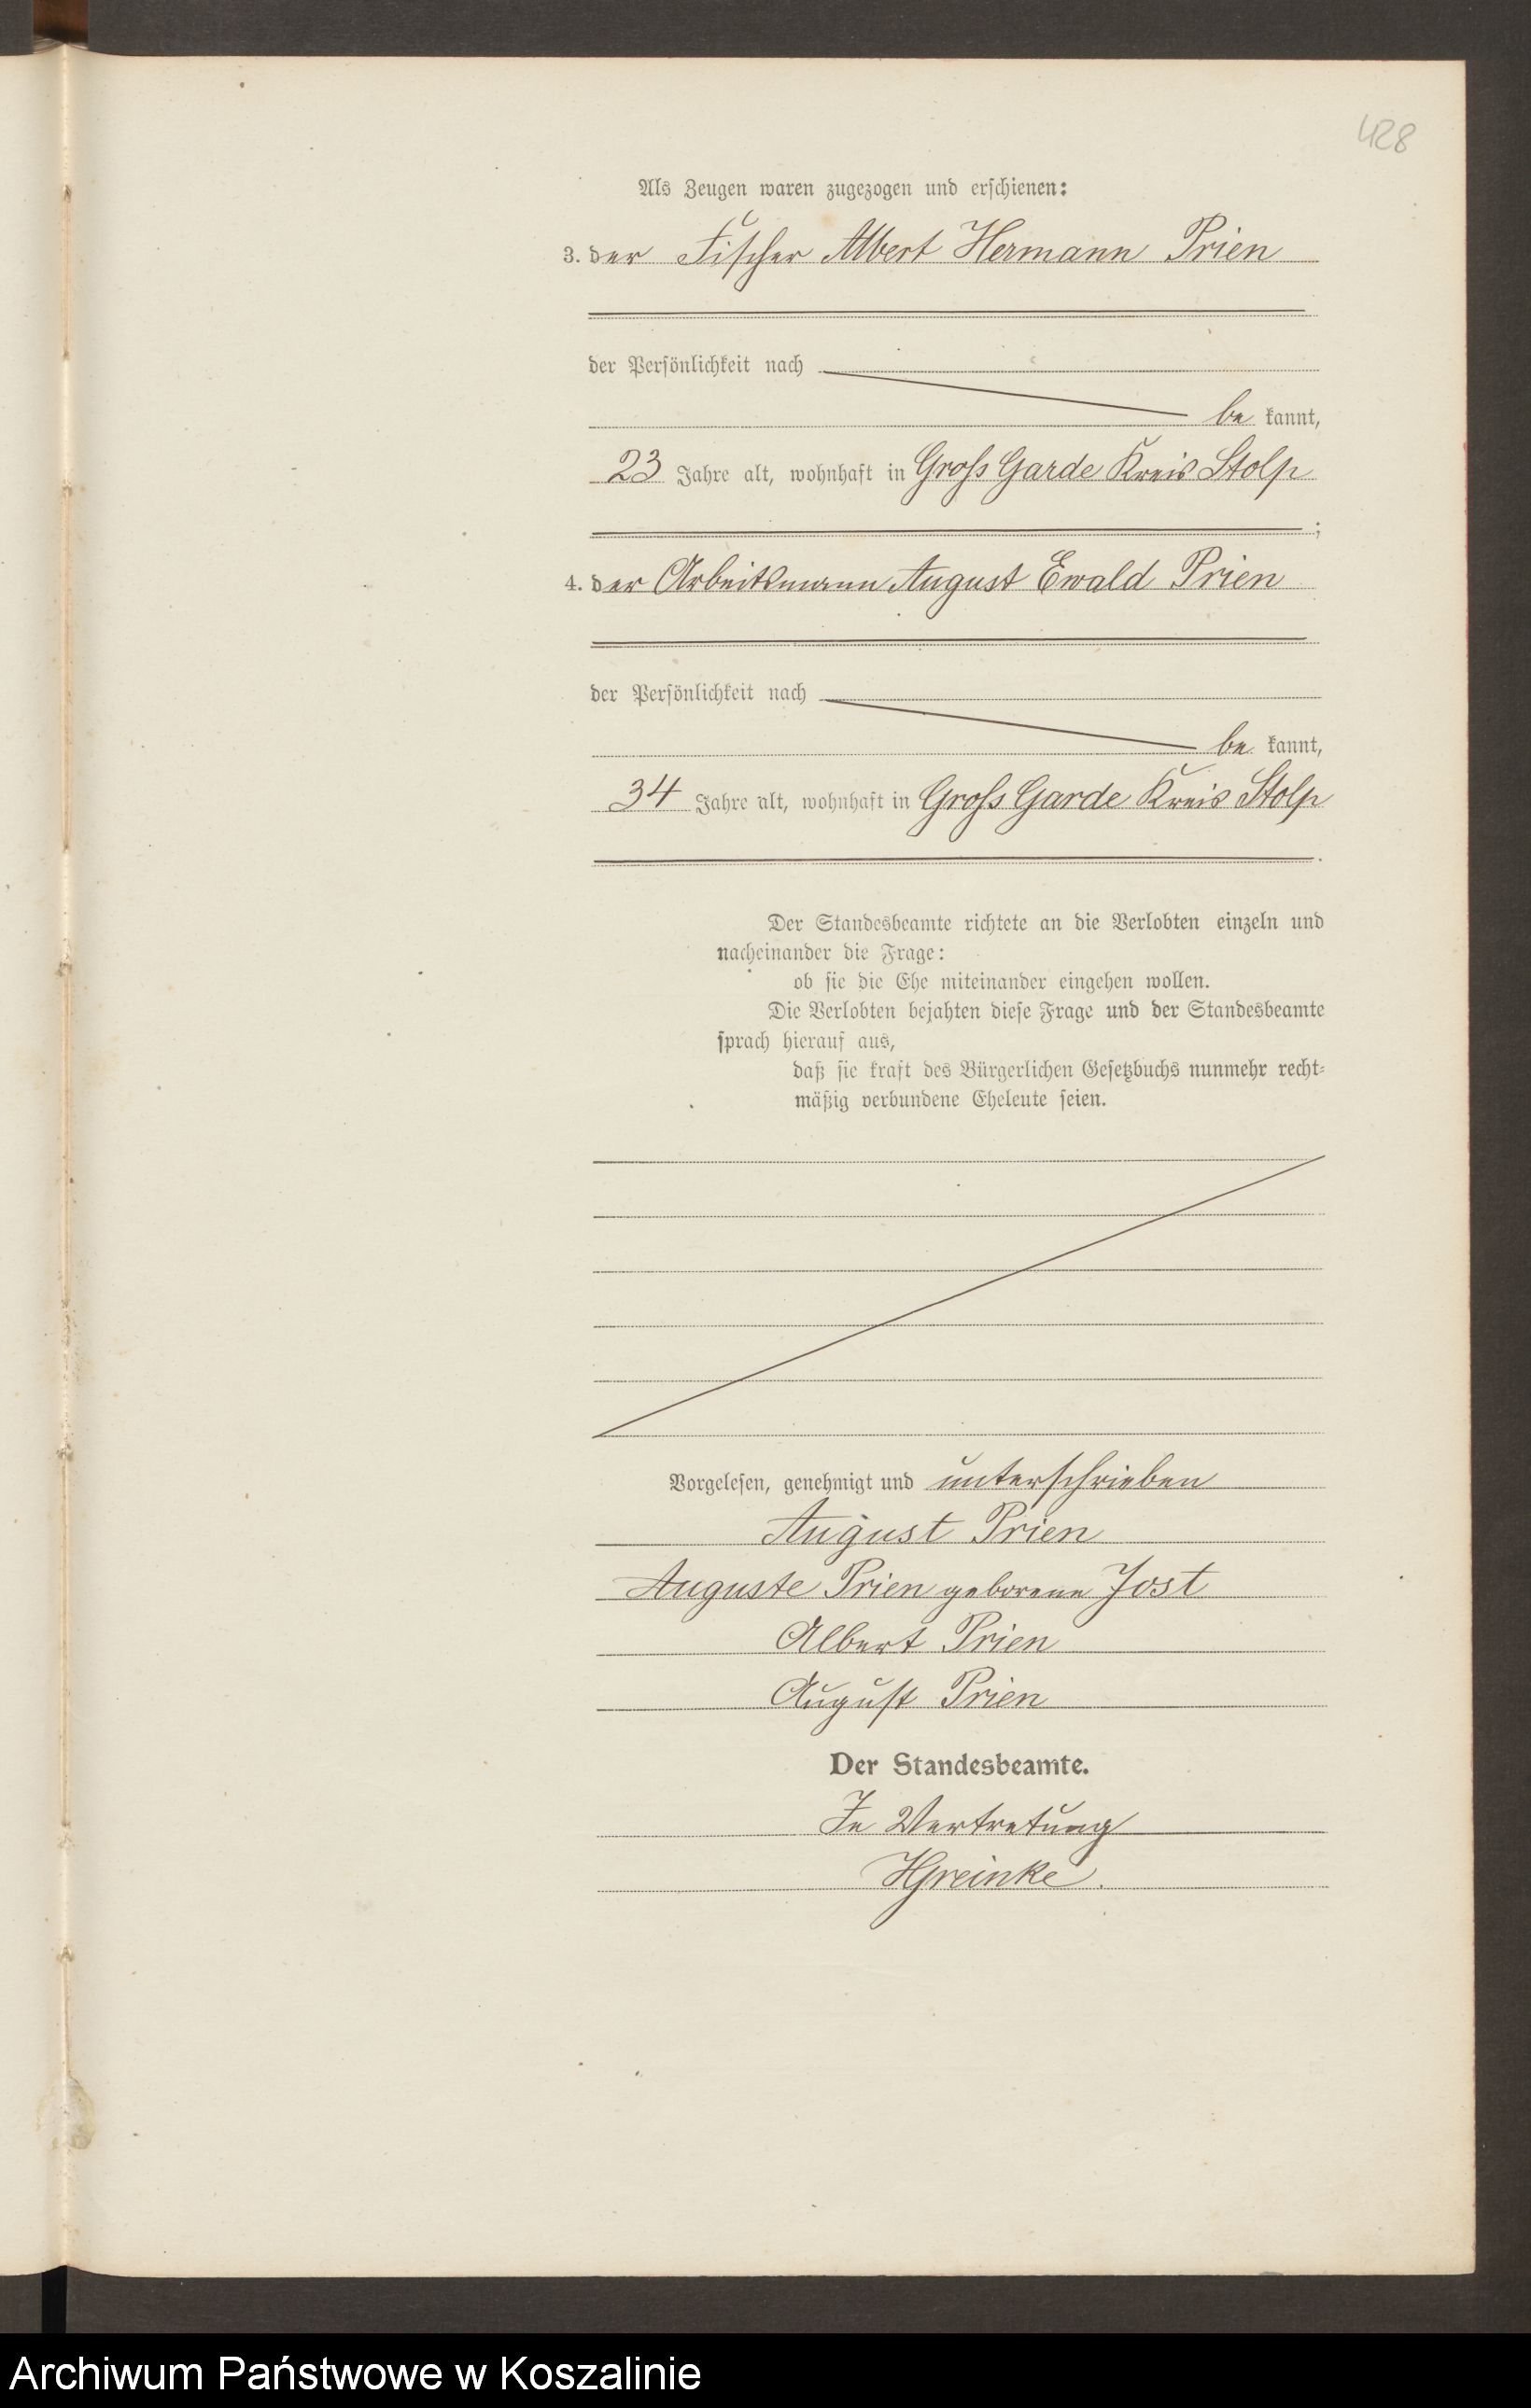 428
Als Zeugen waren zugezogen und erschienen:
3. der Fischer Albert Hermann Prien
der Persönlichkeit nach
be kannt,
23 Jahre alt, wohnhaft in Gross Garde Kreis Stolp
;
4. der Arbeitsmann August Ewald Prien
der Persönlichkeit nach
be kannt,
34 Jahre alt, wohnhaft in Gross Garde Kreis Stolp
.
Der Standesbeamte richtete an die Verlobten einzeln und
nacheinander die Frage:
ob sie die Ehe miteinander eingehen wollen.
Die Verlobten bejahten diese Frage und der Standesbeamte
sprach hierauf aus,
daß sie kraft des Bürgerlichen Gesetzbuchs nunmehr recht-
mäßig verbundene Eheleute seien.
Vorgelesen, genehmigt und unterschrieben
August Prien
Auguste Prien geborene Jost
Albert Prien
August Prien
Der Standesbeamte.
In Vertretung
HGreinke.
Archiwum Państwowe w Koszalinie